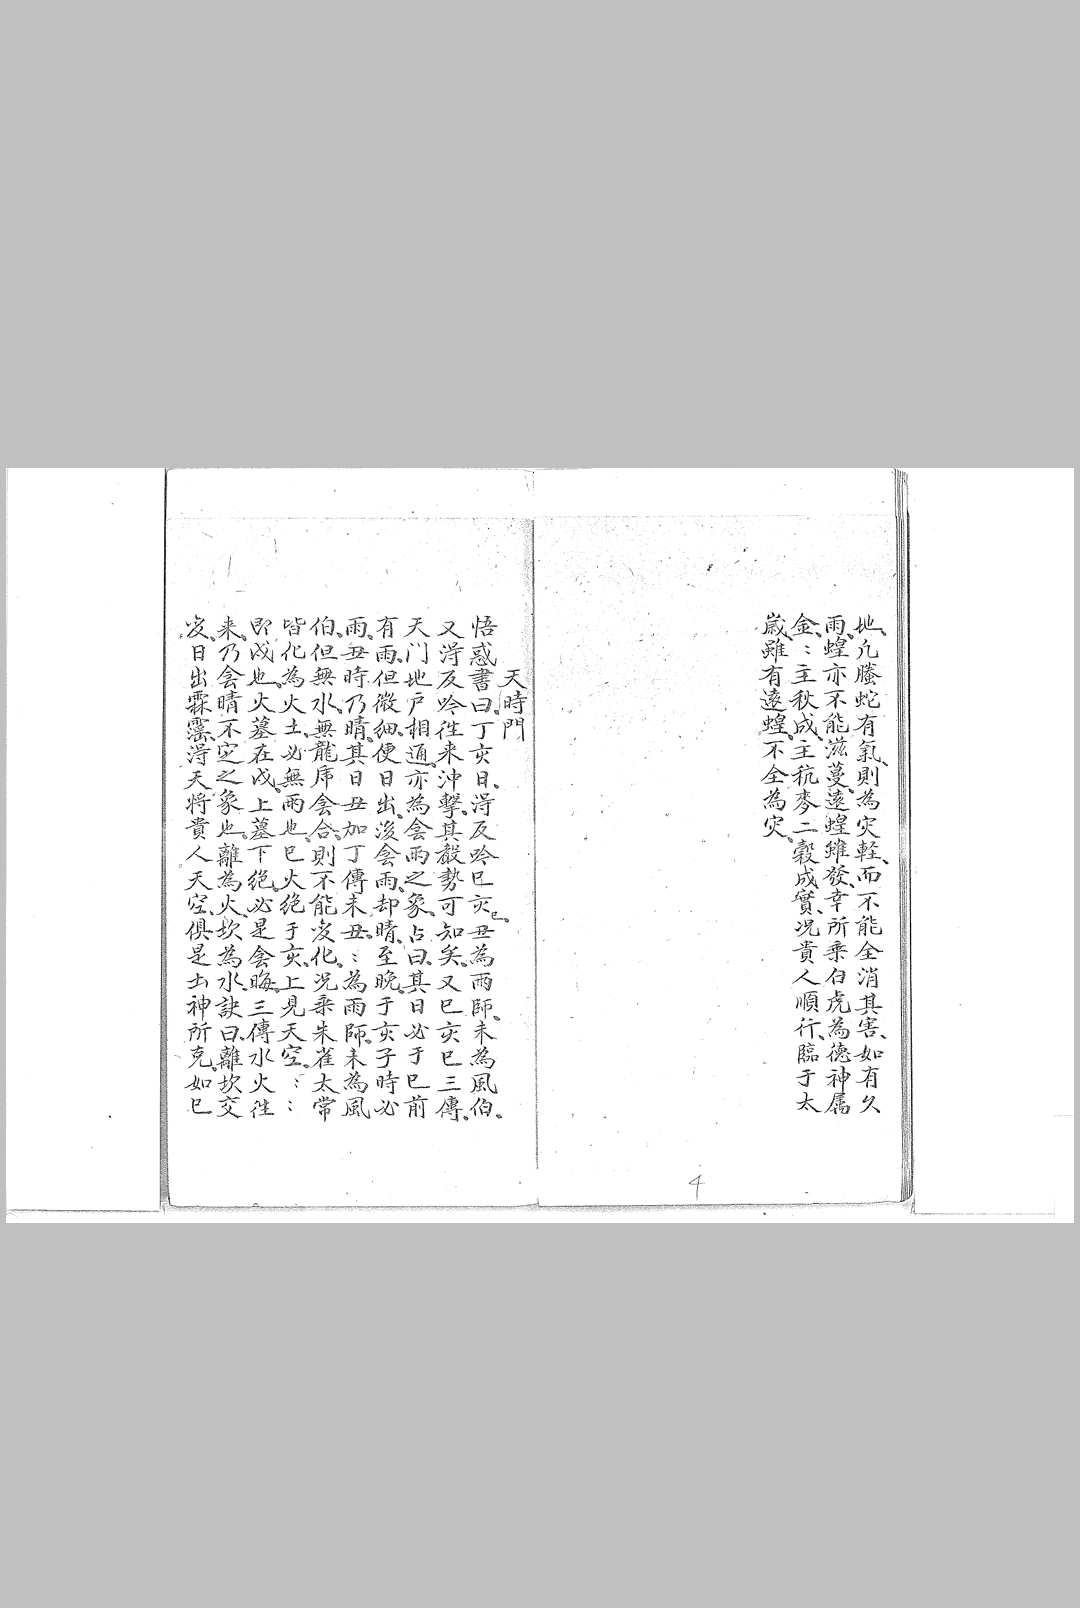 地、凢螣蛇有氣、則為灾軽、而不能全消其害、如有久
雨、蝗亦不能滋蔓、遠蝗雖發、幸所乗白虎為德神属
金、：主秋成、主秔麥二穀成實、况貴人順行、臨于太
嵗、雖有遠蝗、不全為灾、
4
天時門
悟惑書曰、丁亥日、淂反吟巳亥巳、丑為雨師、未為風伯、
又淂反吟徃来沖擊、其殺勢可知矣、又巳亥巳三傳、
天門地戸相通、亦為会雨之象、占曰、其日必于巳前
有雨、但微細、便日出、後会雨、却晴、至晩、于亥子時必
雨、丑時乃晴、其日丑加丁傳未丑、：為雨師、未為風
伯、但無水、無龍虎会合、則不能变化、况乗朱雀太常
皆化為火土、必無雨也、巳火绝于亥、上見天空、：：
即戌也、火墓在戌、上墓下绝、必是会晦、三傳水火徃
来、乃会晴不定之象也、離為火、坎為水、訣曰、離坎交
变、日出霖霪、淂天将貴人天空、俱是土神所克、如巳